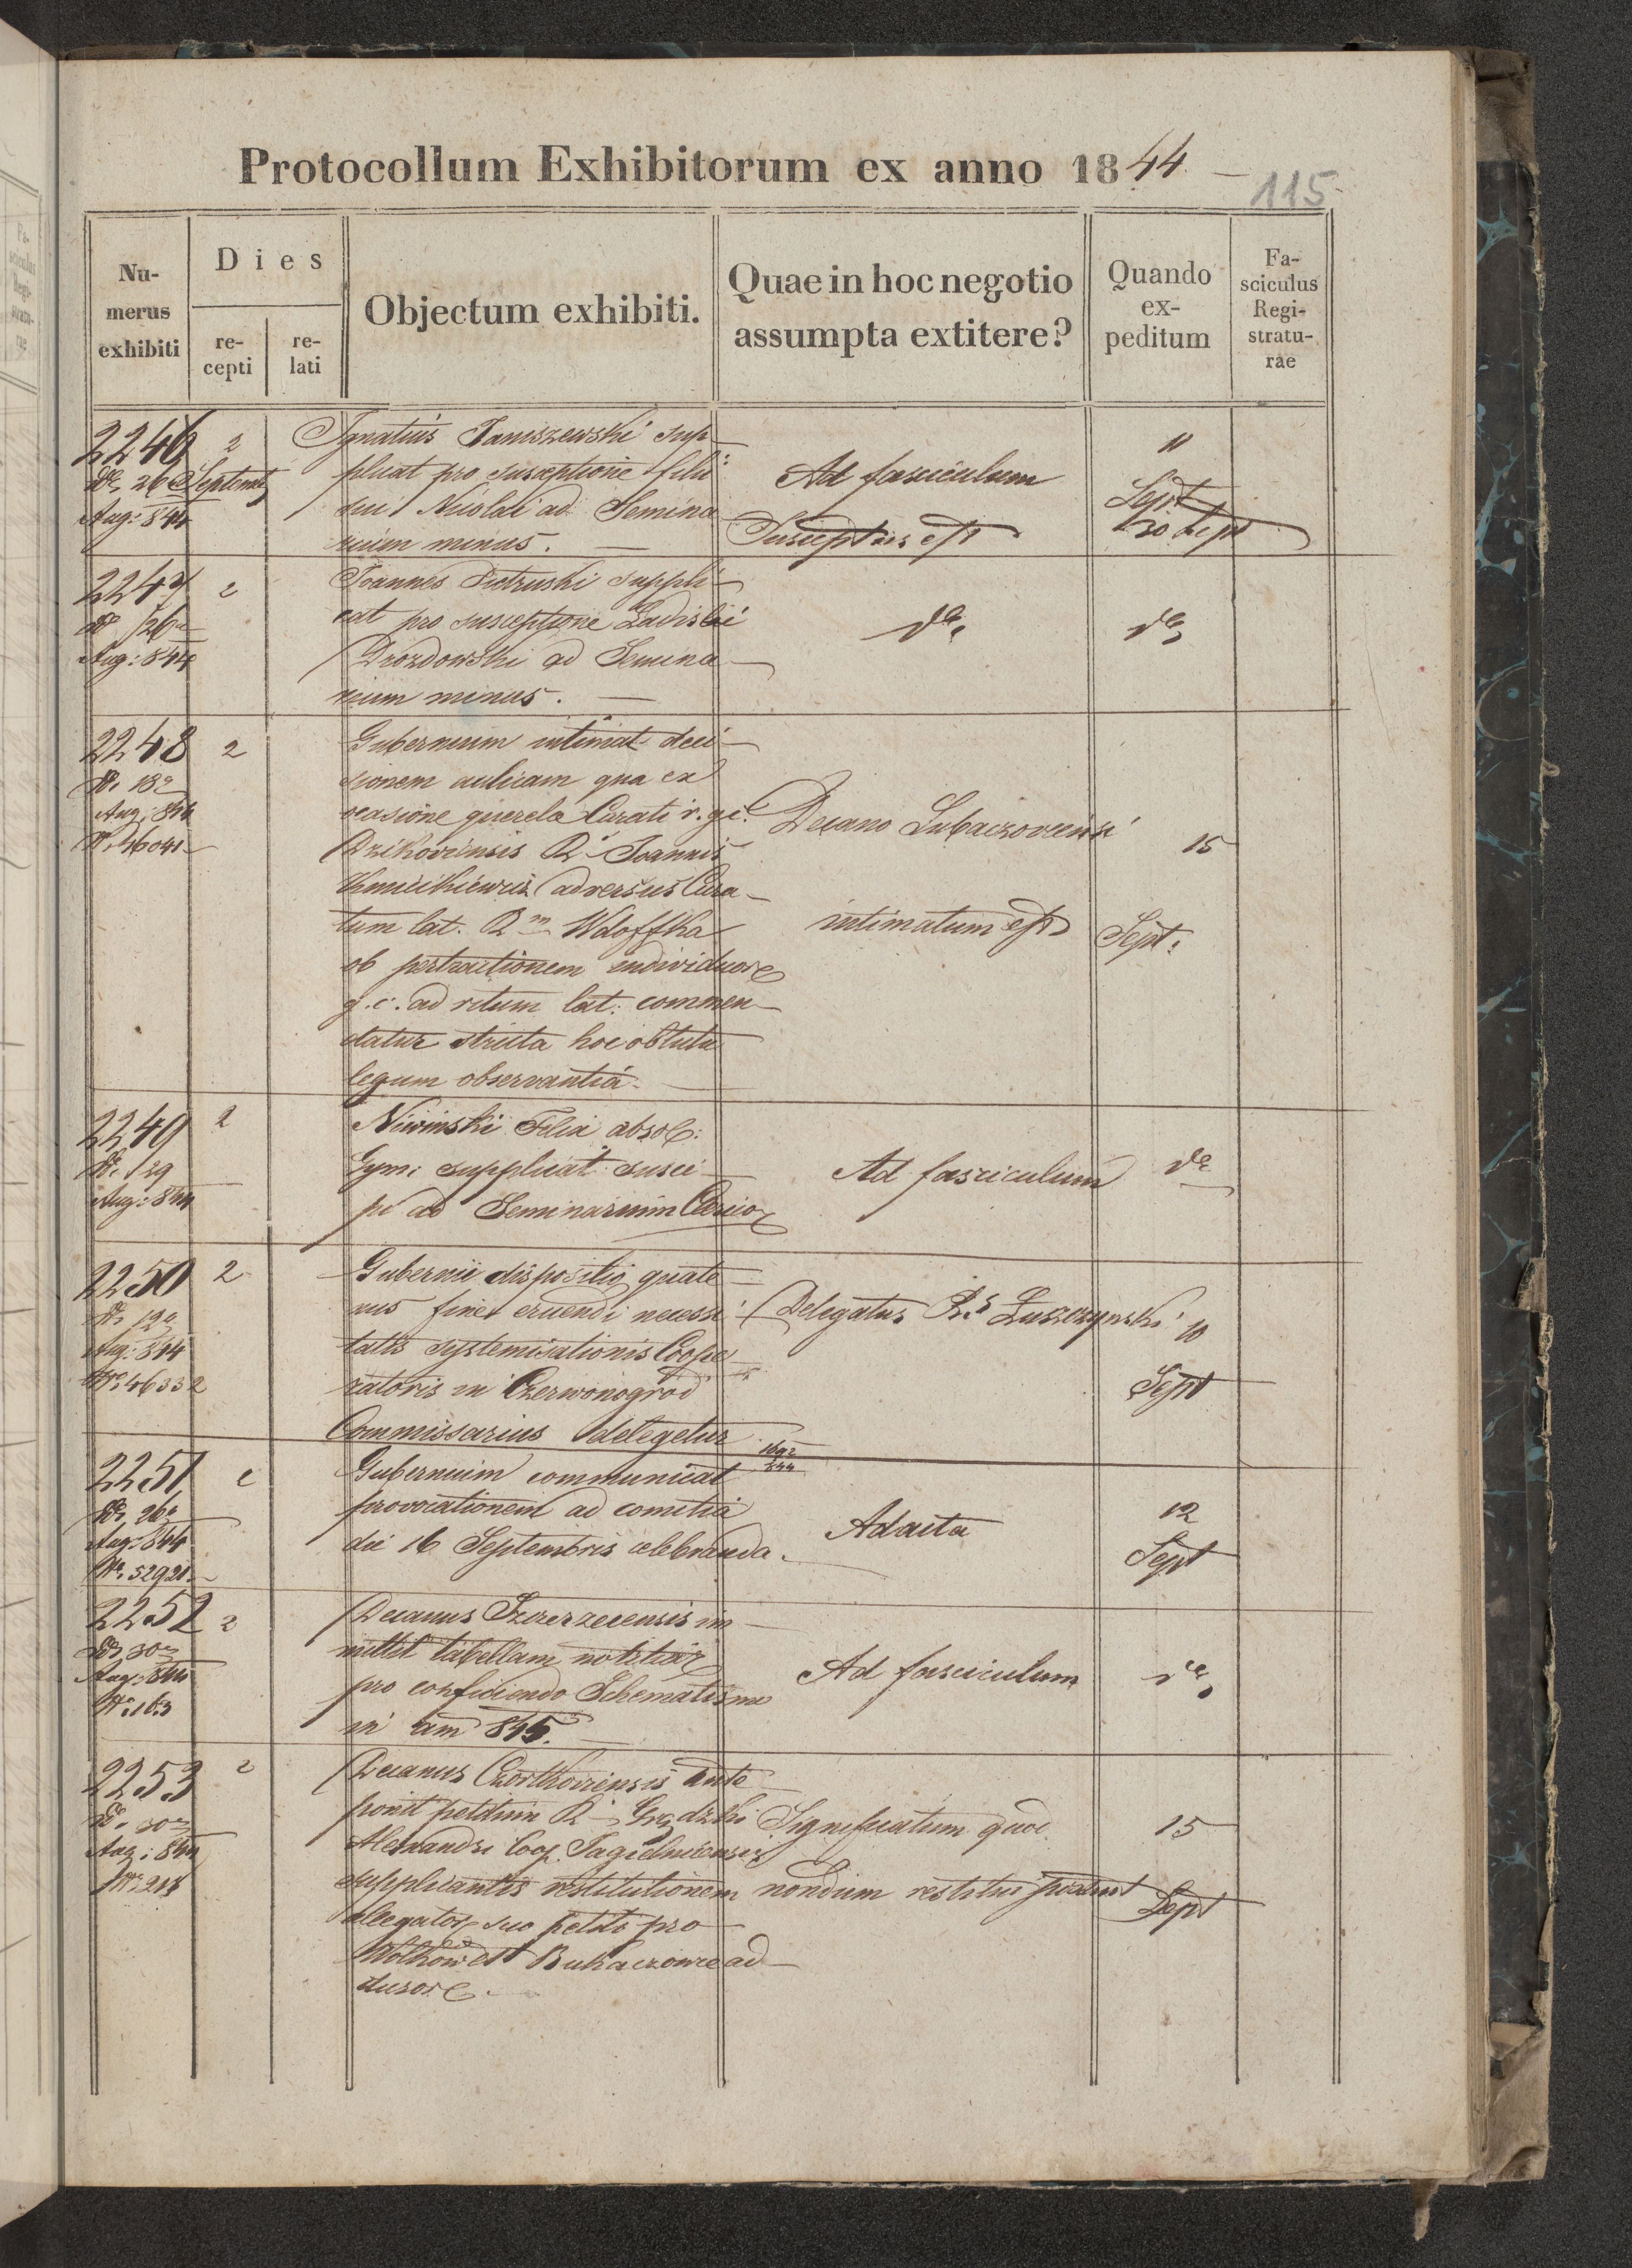 Protocollum Exhibitorum ex anno 1844
115
Numerus exhibiti
Dies
recepti
relati
Objectum exhibiti.
Quae in hoc negotio assumpta extitere?
Quando expeditum
Fasciculus Registraturae
2246
2
Septemb
Dº 26
Aug: 844
Ignatius Janiszewski sup-
plicat pro susceptione filii
sui Nicolai ad Semina-
rium minus. —
Ad fasciculum
Susceptus est
11
Sept
30 Sept
2247
2
Dº 26
Aug: 844
Joannes Pietruski suppli-
cat pro susceptione Ladislai
Drozdowski ad Semina-
rium minus. —
dº
dº
2248
2
Dº 18
Aug: 844
Nº 46041
Gubernium intimat deci-
sionem aulicam qua ex
ocasione querela Curati r. g. c.
Dzikoviensis R. Joannis
adversus Cura-
tum lat. Rm Wdoffka
ob pertractionem individuor
g. c. ad ritum lat. commen-
datur stricta hoc obtutu
legum observantia.
Decano Lubaczoviensi
intimatum est
15
Sept:
2249
2
Dº 29
Aug: 844
Niwinski Felix absol:
Gym: supplicat susci-
pi ad Seminarium Cleric
Ad fasciculum
dº
2250
2
Dº 12
Aug: 844
Nº 46332
Gubernii dispositio quate-
nus fine eruendi necessi-
tatis systemisationis Coope-
ratoris in Czerwonogrod
Commissarius delegetur
Delegatus Rs Luszczynski
10
Sept
2251
2
Dº 26
Aug: 844
Nº 52921
Gubernium communicat
provocationem ad comitia
die 16 Septembris celebranda.
1692
844
Ad acta
12
Sept
2252
2
Dº 30
Aug: 844
Nº 163
Decanus Szczerzecensis im-
mittit tabellam notitiar
pro conficiendo Schematismo
in am 845.
Ad fasciculum
dº
2253
2
Dº 30
Aug: 844
Nº 217
Decanus Czortkoviensis ante-
ponit petitum R.
Alexandri Coop. Jagielnicensis
supplicantis restitutionem
allegator suo petito pro
Wolkow et Bukaczowce ad-
dusor
Significatum quod
nondum restitui possint
15
Sept